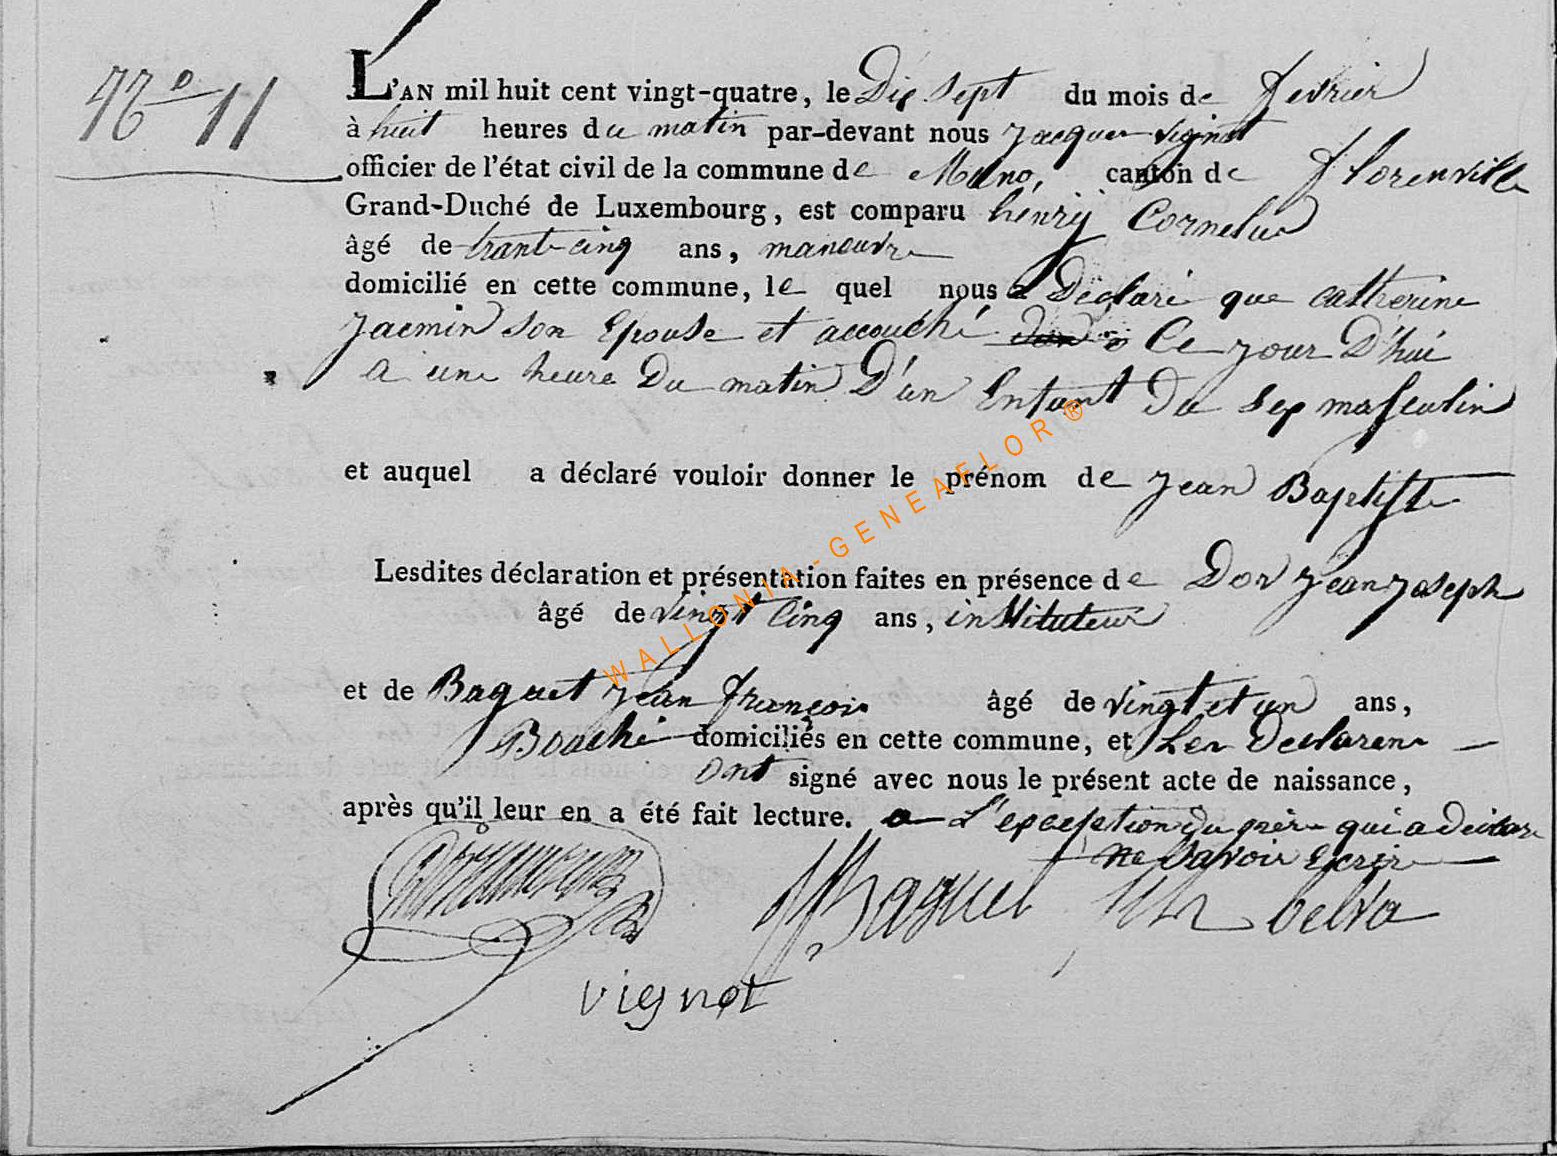 N.o 11
L'AN mil huit cent vingt-quatre, le Dix sept du mois de fevrier
à huit heures du matin par-devant nous jacques vignot
officier de l'état civil de la commune de Muno, canton de florenville
Grand-Duché de Luxembourg, est comparu henry Cornelus
âgé de trant cinq ans, maneuvre
domicilié en cette commune, le quel nous a Déclaré que catherine
jacmin son Epouse et accouché Ce jour D'hui
a une heure Du matin D'un Enfant Du sex masculin
et auquel a déclaré vouloir donner le prénom de jean Baptiste
Lesdites déclaration et présentation faites en présence de Dor jean joseph
âgé de vingt cinq ans, instituteur
et de Baguet jean françois âgé de vingt et un ans,
domiciliés en cette commune, et Les Declarens
ont signé avec nous le présent acte de naissance,
après qu'il leur en a été fait lecture. a L'exception du père qui a declare
Ne savoir Ecrire
Baguet
vignot
WALLONIA-GENEAFLOR®